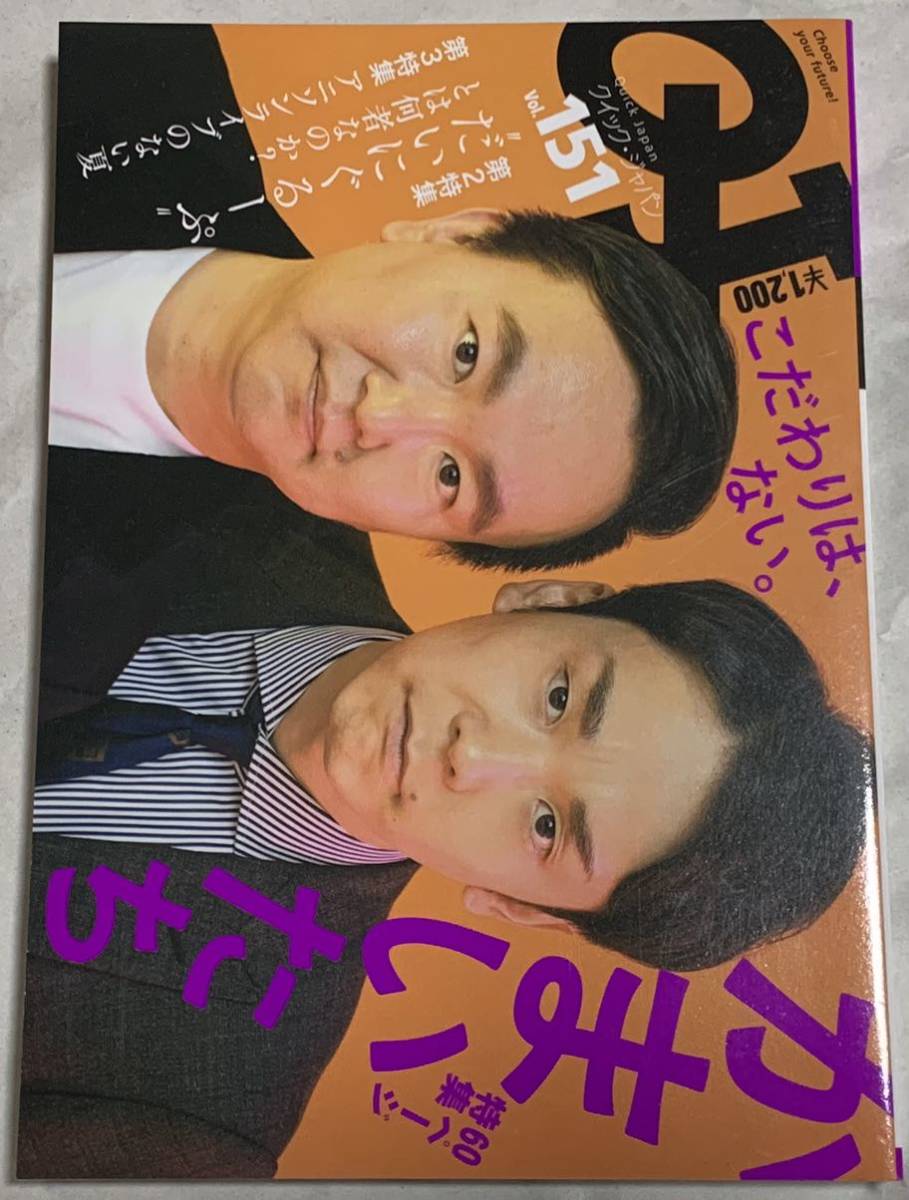 Choose
your future!
QJ
Quick Japan
クイック・ジャパン
Vol.151
¥1,200
こだわりは、
ない。
第2特集
"だいにぐるーぷ"
とは何者なのか?
第3特集 アニソンライブのない夏
かまいたち
60ページ
特集